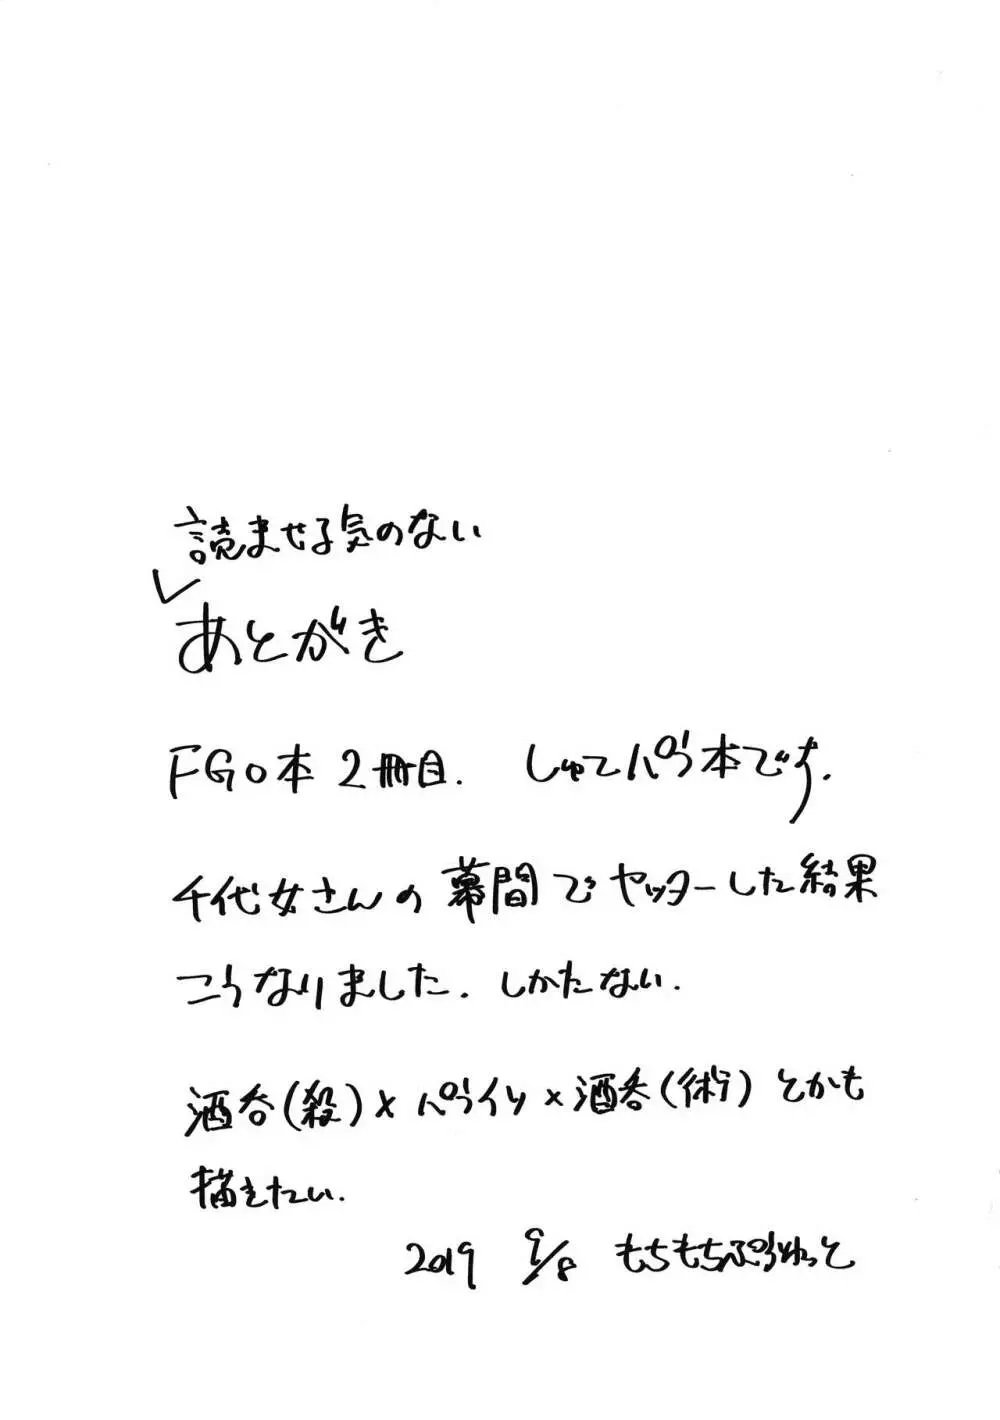 読ませる気のない
あとがき
FGO本2冊目. しゅてパラ本です.
千代女さんの幕間でヤッターした結果
こうなりました. しかたない.
酒呑(殺)×パライソ×酒呑(術)とかも
描きたい.
2019 9/8 もちもちぷらねっと